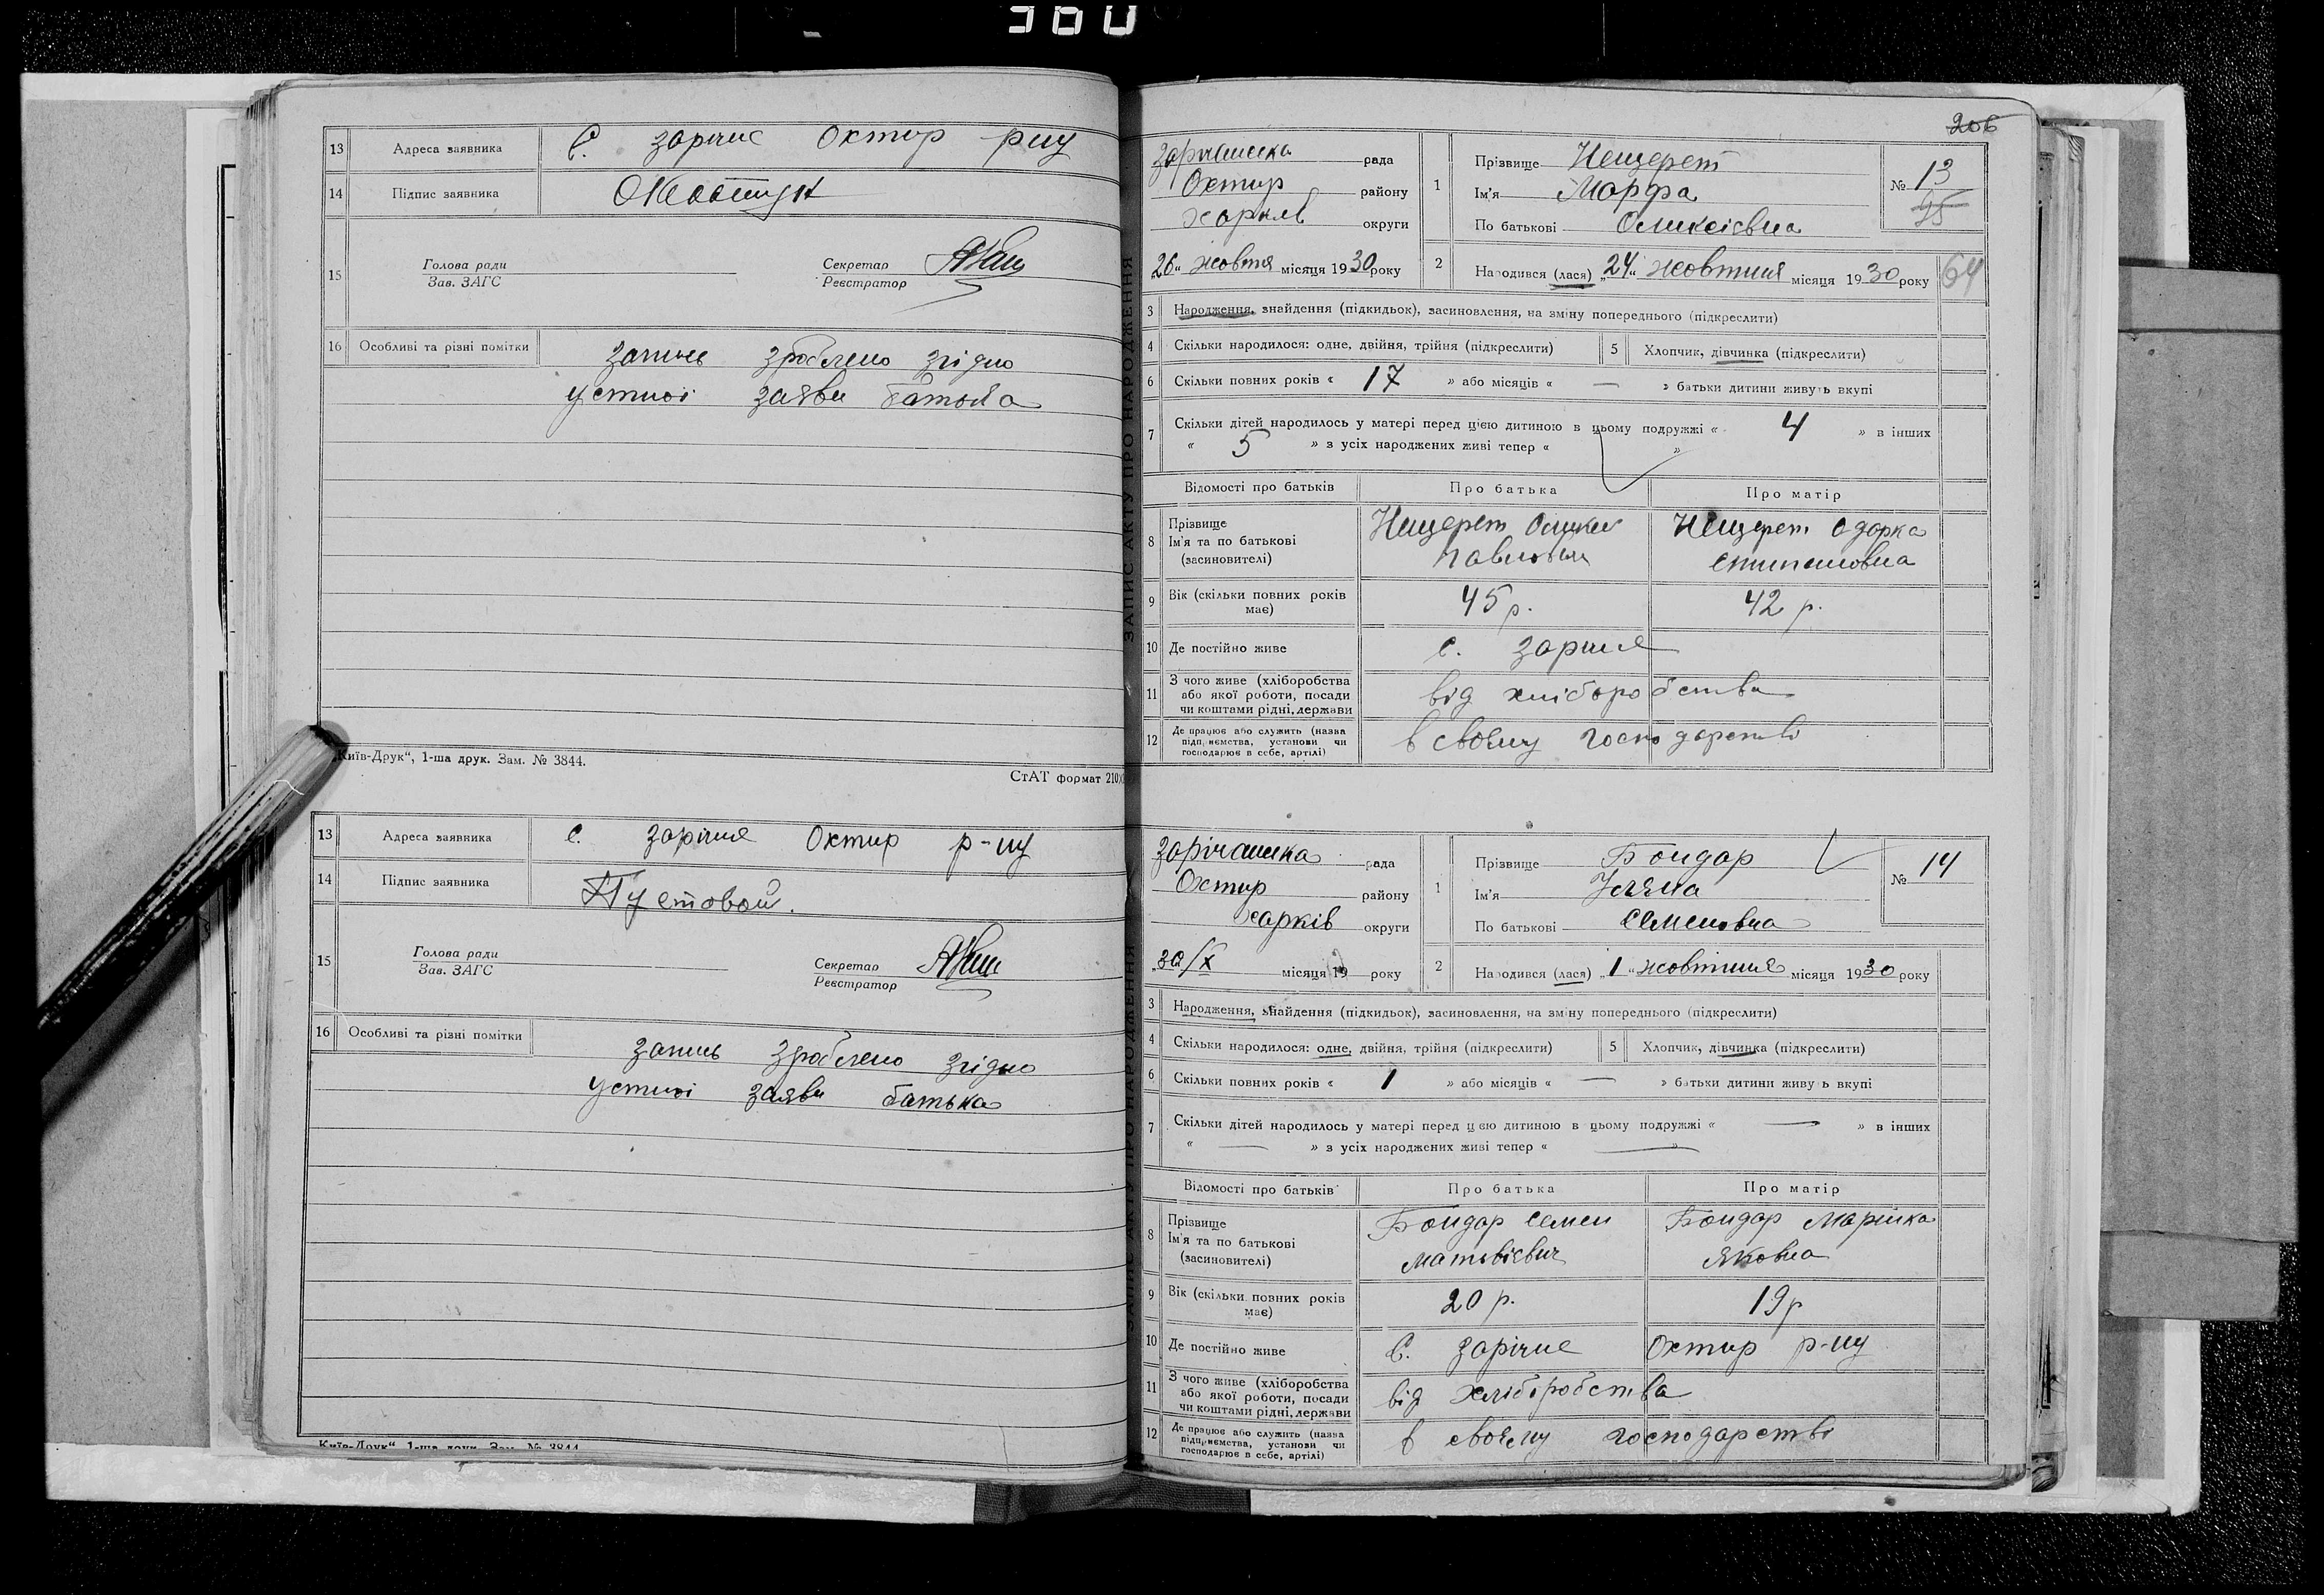 360
13 Адреса заявника С. зарічне Охтир р-ну
14 Підпис заявника
15 Голова ради Секретар
Зав. ЗАГС Реєстратор
16 Особливі та різні помітки запись зроблено згідно
устної заяви батька
„Київ-Друк“, 1-ша друк. Зам. № 3844.
СтАТ формат 210
13 Адреса заявника С. зарічне Охтир р-ну
14 Підпис заявника Пустовой.
15 Голова ради Секретар
Зав. ЗАГС Реєстратор
16 Особливі та різні помітки запись зроблено згідно
устної заяви батька
Київ-Друк“, 1-ша друк. Зам. № 3844
ЗАПИС АКТУ ПРО НАРОДЖЕННЯ
206
рада
Охтир району
Харків округи
26 жовтня місяця 1930 року
1 Прізвище Нещерет
Ім'я Марфа
По батькові Оликсієвна
№ 13
2 Народився (лася) „24“ жовтния місяця 1930 року 64
3 Народження, знайдення (підкидьок), засиновлення, на зміну попереднього (підкреслити)
4 Скільки народилося: одне, двійня, трійня (підкреслити) 5 Хлопчик, дівчинка (підкреслити)
6 Скільки повних років « 17 » або місяців « — » батьки дитини живуть вкупі
7 Скільки дітей народилось у матері перед цією дитиною в цьому подружжі « 4 » в інших
« 5 » з усіх народжених живі тепер « »
Відомості про батьків Про батька Про матір
8 Прізвище Ім'я та по батькові (засновителі) Нещерет Оликсій Павлович Нещерет Одарка Степановна
9 Вік (скільки повних років має) 45 р. 42 р.
10 Де постійно живе с. зарічне
11 З чого живе (хліборобства або якої роботи, посади чи коштами рідні, держави від хліборобства
12 Де працює або служить (назва підприємства, установи чи господарює в себе, артілі) в своєму господарстві
ЗАПИС АКТУ ПРО НАРОДЖЕННЯ
зарічанська рада
Охтир району
Харків округи
„30/X місяця 19 року
1 Прізвище Бондар
Ім'я Уляна
По батькові Семеновна
№ 14
2 Народився (лася) „1“ жовтння місяця 1930 року
3 Народження, знайдення (підкидьок), засиновлення, на зміну попереднього (підкреслити)
4 Скільки народилося: одне, двійня, трійня (підкреслити) 5 Хлопчик, дівчинка (підкреслити)
6 Скільки повних років « 1 » або місяців « — » батьки дитини живуть вкупі
7 Скільки дітей народилось у матері перед цією дитиною в цьому подружжі « — » в інших
« — » з усіх народжених живі тепер « — »
Відомості про батьків Про батька Про матір
8 Прізвище Ім'я та по батькові (засиновителі) Бондар Семен Матвієвич Бондар Марійка Яковна
9 Вік (скільки повних років має) 20 р. 19 р
10 Де постійно живе С. зарічне Охтир р-ну
11 З чого живе (хліборобства або якої роботи, посади чи коштами рідні, держави від хліборобства
12 Де працює або служить (назва підприємства, установи чи господарює в себе, артілі) в своєму господарстві